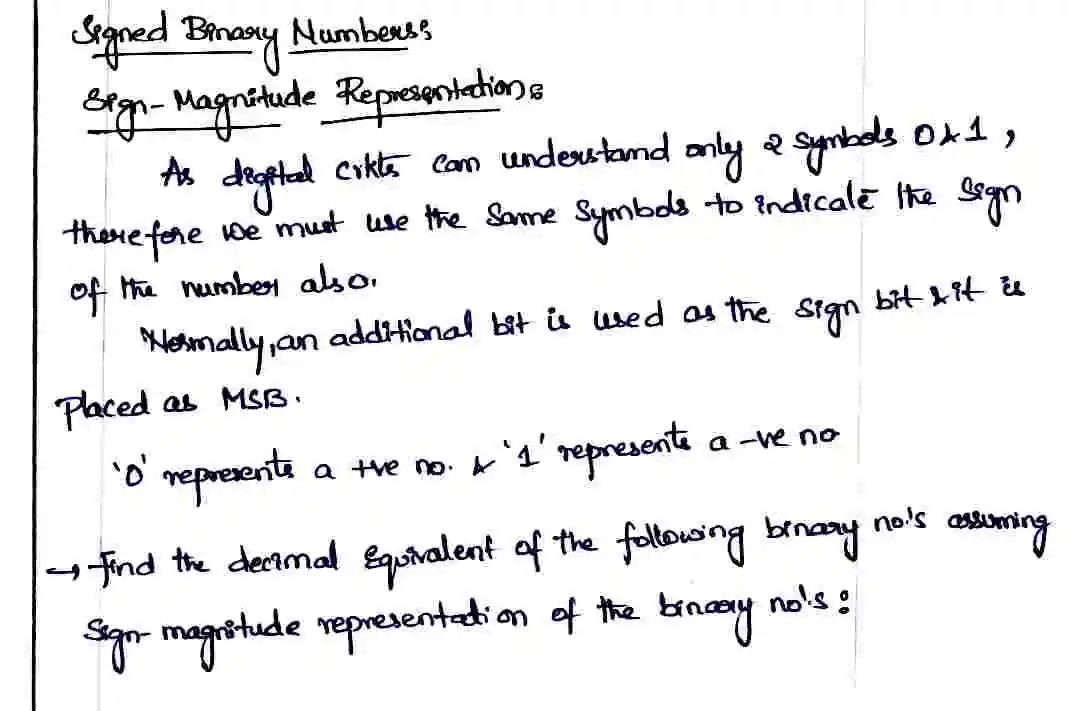 Signed Binary Numbers:
Sign-Magnitude Representation:
As digital crkts can understand only 2 symbols 0 & 1,
therefore we must use the same symbols to indicate the sign
of the number also.
Normally, an additional bit is used as the sign bit & it is
placed as MSB.
'0' represents a +ve no. & '1' represents a -ve no
→ Find the decimal equivalent of the following binary no.'s assuming
sign-magnitude representation of the binary no's: